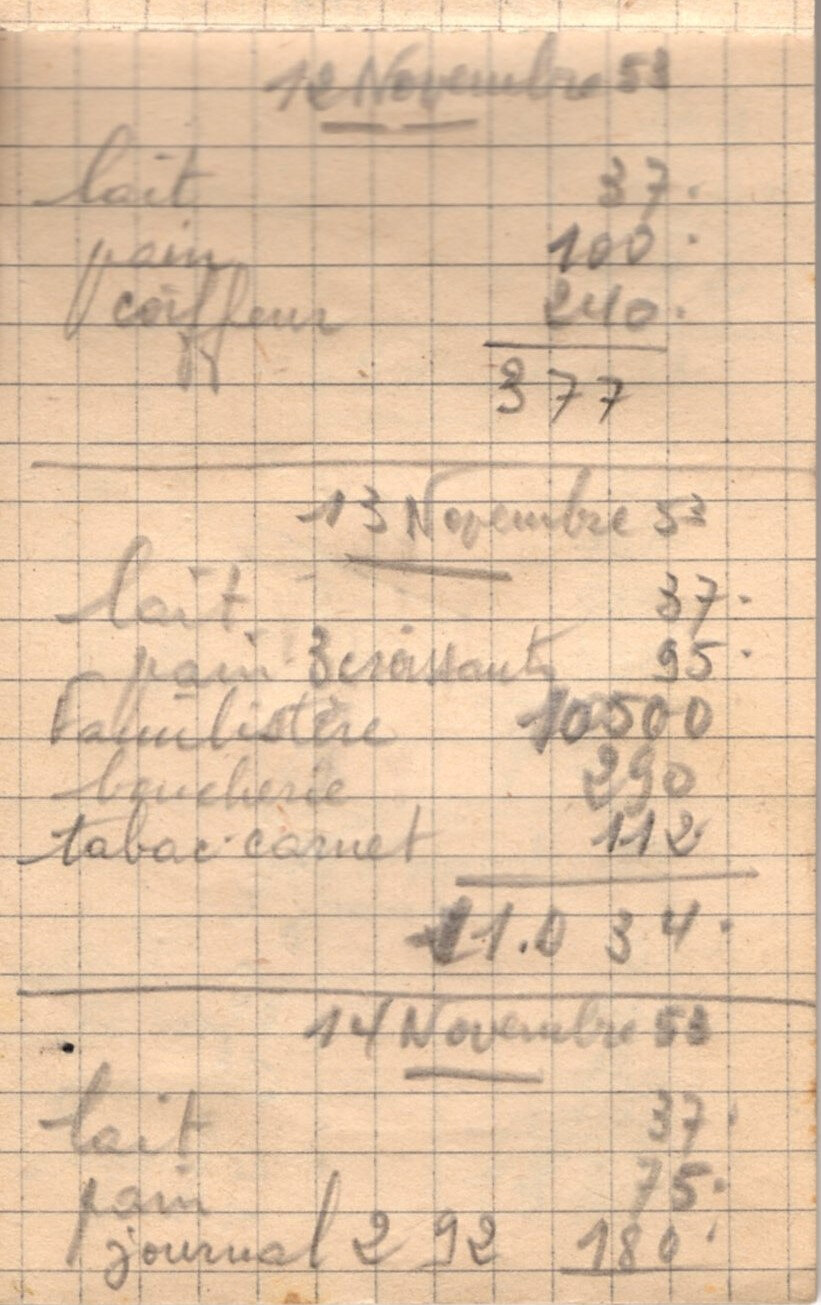 12 Novembre 53
lait 37.
pain 100.
coiffeur 240.
377
13 Novembre 53
lait 37.
pain 3 croissants 95.
Familistère 10500
boucherie 290
tabac carnet 112
11.034.
14 Novembre 53
lait 37.
pain 75.
journal 2 92 180.